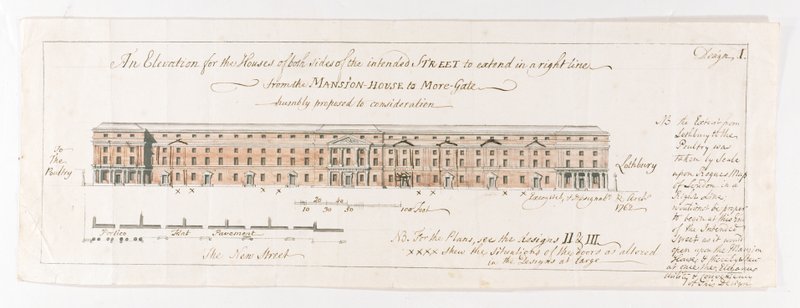 Design I.
An Elevation for the Houses of both sides of the intended STREET to extend in a right line
from the MANSION-HOUSE to More-Gate
humbly proposed to consideration
To
The
Poultry
Lothbury
1762
10 20 30 40 50 100 Feet
Portico Flat Pavement
The New Street
NB. For the Plans, see the designs II & III
×××× shew the Situations of the doors as altered
in the designs at large
NB the Extent from
Lothbury to the
Poultry was
taken by Scale
upon Roques Map
of London in a
Right Line
to begin at this End
of the Intended
Street as it would
open upon the Mansion
House, &
at once the
Utility &
of the Design